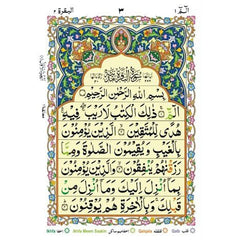 الٓمّٓ ١
٣
البقرة ٢
بِسْمِ اللّٰهِ الرَّحْمٰنِ الرَّحِيْمِ
الٓمّٓ ذٰلِكَ الْكِتٰبُ لَا رَيْبَ فِيْهِ
هُدًى لِّلْمُتَّقِيْنَ الَّذِيْنَ يُؤْمِنُوْنَ
بِالْغَيْبِ وَيُقِيْمُوْنَ الصَّلٰوةَ وَمِمَّا
رَزَقْنٰهُمْ يُنْفِقُوْنَ وَالَّذِيْنَ يُؤْمِنُوْنَ
بِمَآ اُنْزِلَ اِلَيْكَ وَمَآ اُنْزِلَ مِنْ
قَبْلِكَ وَبِالْاٰخِرَةِ هُمْ يُوْقِنُوْنَ
Ikhfa Ikhfa Meem Saakin Qalqala Qalb